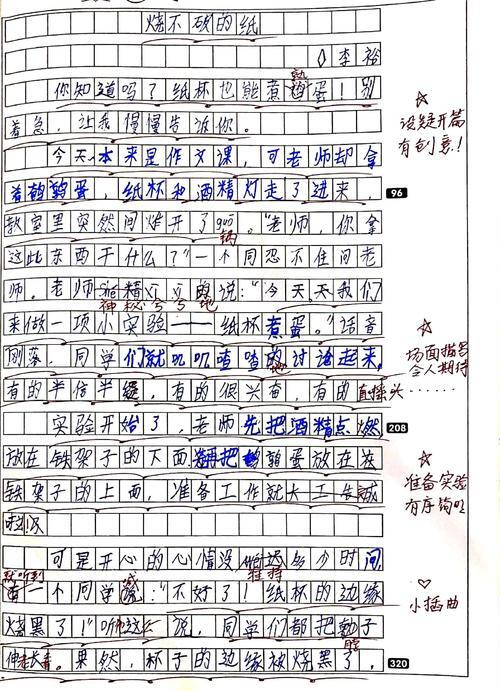 烧不破的纸
李裕
你知道吗？纸杯也能煮熟鸡蛋！别
着急，让我慢慢告诉你。
☆
设疑开篇
有创意！
今天本来是作文课，可老师却拿
着鹌鹑蛋，纸杯和酒精灯走了进来，
96
教室里突然间炸开了锅。"老师，你拿
这些东西干什么？"一个同忍不住问老
师。老师神秘兮兮地说："今天，我们
来做一项小实验——纸杯煮蛋。"话音
刚落，同学们就叽叽喳喳地讨论起来，
有的半信半疑，有的很兴奋，有的直摇头……
☆
场面描写
令人期待
实验开始了，老师先把酒精点燃
208
放在铁架子的下面，再把鹌鹑蛋放在在
铁架子的上面，准备工作就大工告诚
啦
☆
准备实验
有序
可是开心的心情没维持多少时间，
就听到一个同学喊："不好了！纸杯的边缘
烧黑了！"听这么说，同学们都把脖子
伸老长。果然，杯子的边缘被烧黑了，
320
♡
小插曲